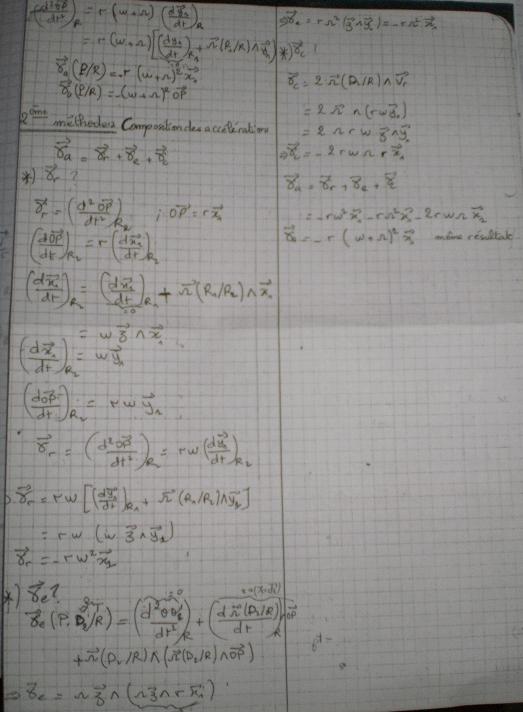 (d²OP/dt²)R = r (w+Ω) (dy₁/dt)R
= r (w+Ω) [(dy₁/dt)R₁ + Ω(R₁/R) ∧ y₁]
γa (P/R) = -r (w+Ω)² x₁
γa (P/R) = -(w+Ω)² OP
2ème méthode: Composition des accélérations
γa = γr + γe + γc
*) γr ?
γr = (d²OP/dt²)R₂ ; OP = r x₁
(dOP/dt)R₂ = r (dx₁/dt)R₂
(dx₁/dt)R₂ = (dx₁/dt)R₁ + Ω(R₁/R₂) ∧ x₁
=0
= w z ∧ x₁
(dx₁/dt)R₂ = w y₁
(dOP/dt)R₂ = r w y₁
γr = (d²OP/dt²)R₂ = r w (dy₁/dt)R₂
γr = r w [(dy₁/dt)R₁ + Ω(R₁/R₂) ∧ y₁]
= r w (w z ∧ y₁)
γr = - r w² x₁
*) γe ?
γe (P, R₂/R) = (d²OO₂/dt²)R + (dΩ(R₂/R)/dt)R ∧ OP
+ Ω(R₂/R) ∧ (Ω(R₂/R) ∧ OP)
⇒ γe = Ω z ∧ (Ω z ∧ r x₁)
⇒ γe = r Ω² (z ∧ y₁) = - r Ω² x₁
*) γc ?
γc = 2 Ω(R₂/R) ∧ Vr
= 2 Ω ∧ (r w y₁)
= 2 Ω r w z ∧ y₁
⇒ γc = - 2 r w Ω r x₁
γa = γr + γe + γc
= - r w² x₁ - r Ω² x₁ - 2 r w Ω x₁
γa = - r (w+Ω)² x₁ même résultat